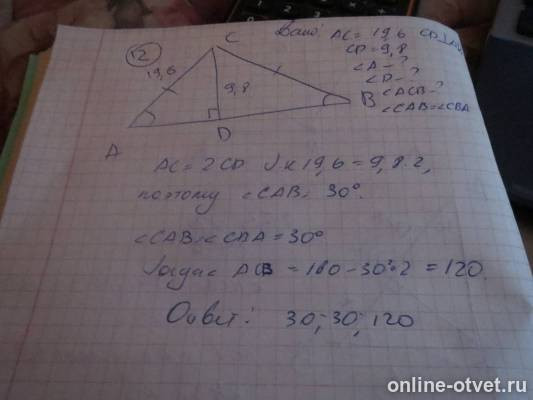 12
C
Дано: AC = 19,6 CD ⊥
CD = 9,8
∠A - ?
∠D - ?
∠ACB - ?
∠CAB = ∠CBA
19,6
9,8
A
D
B
AC = 2CD т.к 19,6 = 9,8·2,
поэтому ∠CAB = 30°.
∠CAB = ∠CBA = 30°
Тогда ∠ACB = 180 - 30°·2 = 120
Ответ: 30; 30; 120
online-otvet.ru